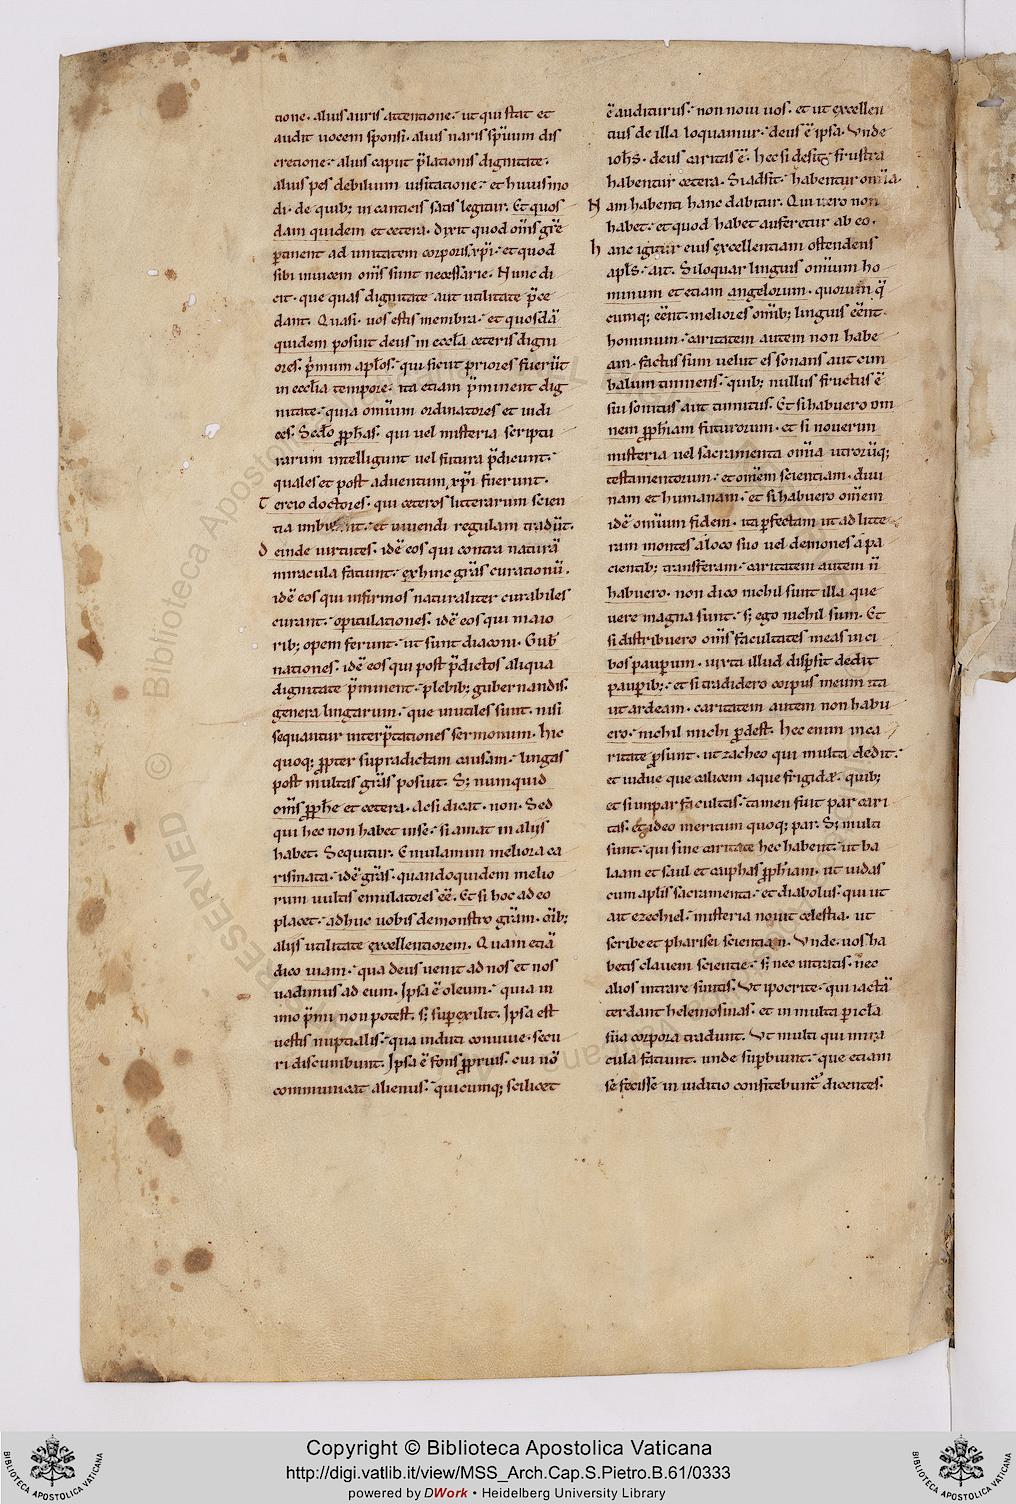 tione. alius auris attentione. ut qui stat et
audit uocem sponsi. alius naris sp̄iuum dis
cretione. alius caput p̄lationis dignitate.
alius pes debilium uisitatione. et huiusmo
di. de quib; in canticis satis legitur. Et quos
dam quidem et cetera. Dixit quod om̄s gr̄e
ptinent ad unitatem corporis xp̄i. et quod
sibi inuicem om̄s sunt necessarie. Nunc di
cit. que quas dignitate aut utilitate p̄ce
dant. Quasi. uos estis membra. et quosdā
quidem posuit deus in eccl̄a ceteris digni
ores. p̄mum apl̄os. qui sicut priores fuerūt
in eccl̄ia tempore. ita etiam p̄minent dig
nitate. quia omium ordinatores et iudi
ces. Sc̄do p̄ph̄as. qui uel misteria scriptu
rarum intelligunt uel futura p̄dicunt.
quales et post aduentum xp̄i fuerunt.
Tercio doctores. qui ceteros litterarum scien
tia imbuunt. et uiuendi regulam tradūt.
Deinde uirtutes. idē eos qui contra naturā
miracula faciunt. exhinc gr̄as curationū.
idē eos qui infirmos naturaliter curabiles
curant. opitulationes. idē eos qui maio
rib; opem ferunt. ut sunt diaconi. Gub
nationes. idē eos qui post p̄dictos aliqua
dignitate p̄minent. plebib; gubernandis.
genera linguarum. que inutiles sunt. nisi
sequantur interp̄tationes sermonum. hic
quoq; ppter supradictam causam. linguas
post multas gr̄as posiut. S; numquid
om̄s pph̄e et cetera. Acsi dicat. non. Sed
qui hec non habet in se. si amat in alijs
habet. Sequitur. Emulamini meliora ca
rismata. idē gr̄as. quandoquidem melio
rum uultis emulatores eē. Et si hoc adeo
placet. adhuc uobis demonstro gr̄am. oīb;
alijs utilitate excellentiorem. Quam etiā
dico uiam. qua deus uenit ad nos et nos
uadimus ad eum. Ipsa ē oleum. quia in
imo p̄mi non potest. s; supexilit. Ipsa est
uestis nuptialis. qua induti conuiue. secu
ri discumbunt. Ipsa ē fons pprius. cui nō
communicat alienus. quicumq; scilicet
ē auditurus. non noui uos. et ut excellen
tius de illa loquamur. deus ē ipsa. Vnde
ioh̄s. deus caritas ē. hec si desit frustra
habentur cetera. Si adsit. habentur om̄ia.
Nam habenti hanc dabitur. Qui uero non
habet. et quod habet auferetur ab eo.
hanc igitur eius excellentiam ostendens
apl̄s. ait. Si loquar linguis omium ho
minum et etiam angelorum. quorum q̄
cumq; eēnt. meliores om̄ib; linguis eēnt.
hominum. caritatem autem non habe
am. factus sum uelut es sonans aut cim
balum tinniens. quib; nullus fructus ē
sui sonitus aut tinnitus. Et si habuero om
nem pph̄iam futurorum. et si nouerim
misteria uel sacramenta om̄ia utrorūq;
testamentorum. et om̄em scientiam. diui
nam et humanam. et si habuero om̄em
idē omium fidem. ita pfectam ut ad litte
ram montes a loco suo uel demones a pa
cientib; transferam. caritatem autem n̄
habuero. non dico nichil sunt illa que
uere magna sunt. s; ego nichil sum. Et
si distribuero om̄s facultates meas in ci
bos paupum. iuxta illud dispsit dedit
paupib;. et si tradidero corpus meum ita
ut ardeam. caritatem autem non habu
ero. nichil michi pdest. hec enim in ca
ritate psunt. ut zacheo qui multa dedit.
et uidue que calicem aque frigidæ. quib;
et si impar facultas. tamen fuit par cari
tas. et ideo meritum quoq; par. S; multi
sunt. qui sine caritate hec habent. ut ba
laam et saul et cayphas pph̄iam. ut iudas
cum aplis sacramenta. et diabolus. qui ut
ait ezechiel. misteria nouit celestia. ut
scribe et pharisei scientiam. Vnde. uos ha
betis clauem scientie. s; nec intratis. nec
alios intrare sinitis. Vt ipocrite. qui iactā
ter dant helemosinas. et in multa picl̄a
sua corpora tradunt. Vt multi qui mira
cula faciunt. unde supbiunt. que etiam
se fecisse in iuditio confitebunt dicentes.
Copyright © Biblioteca Apostolica Vaticana
http://digi.vatlib.it/view/MSS_Arch.Cap.S.Pietro.B.61/0333
powered by DWork • Heidelberg University Library